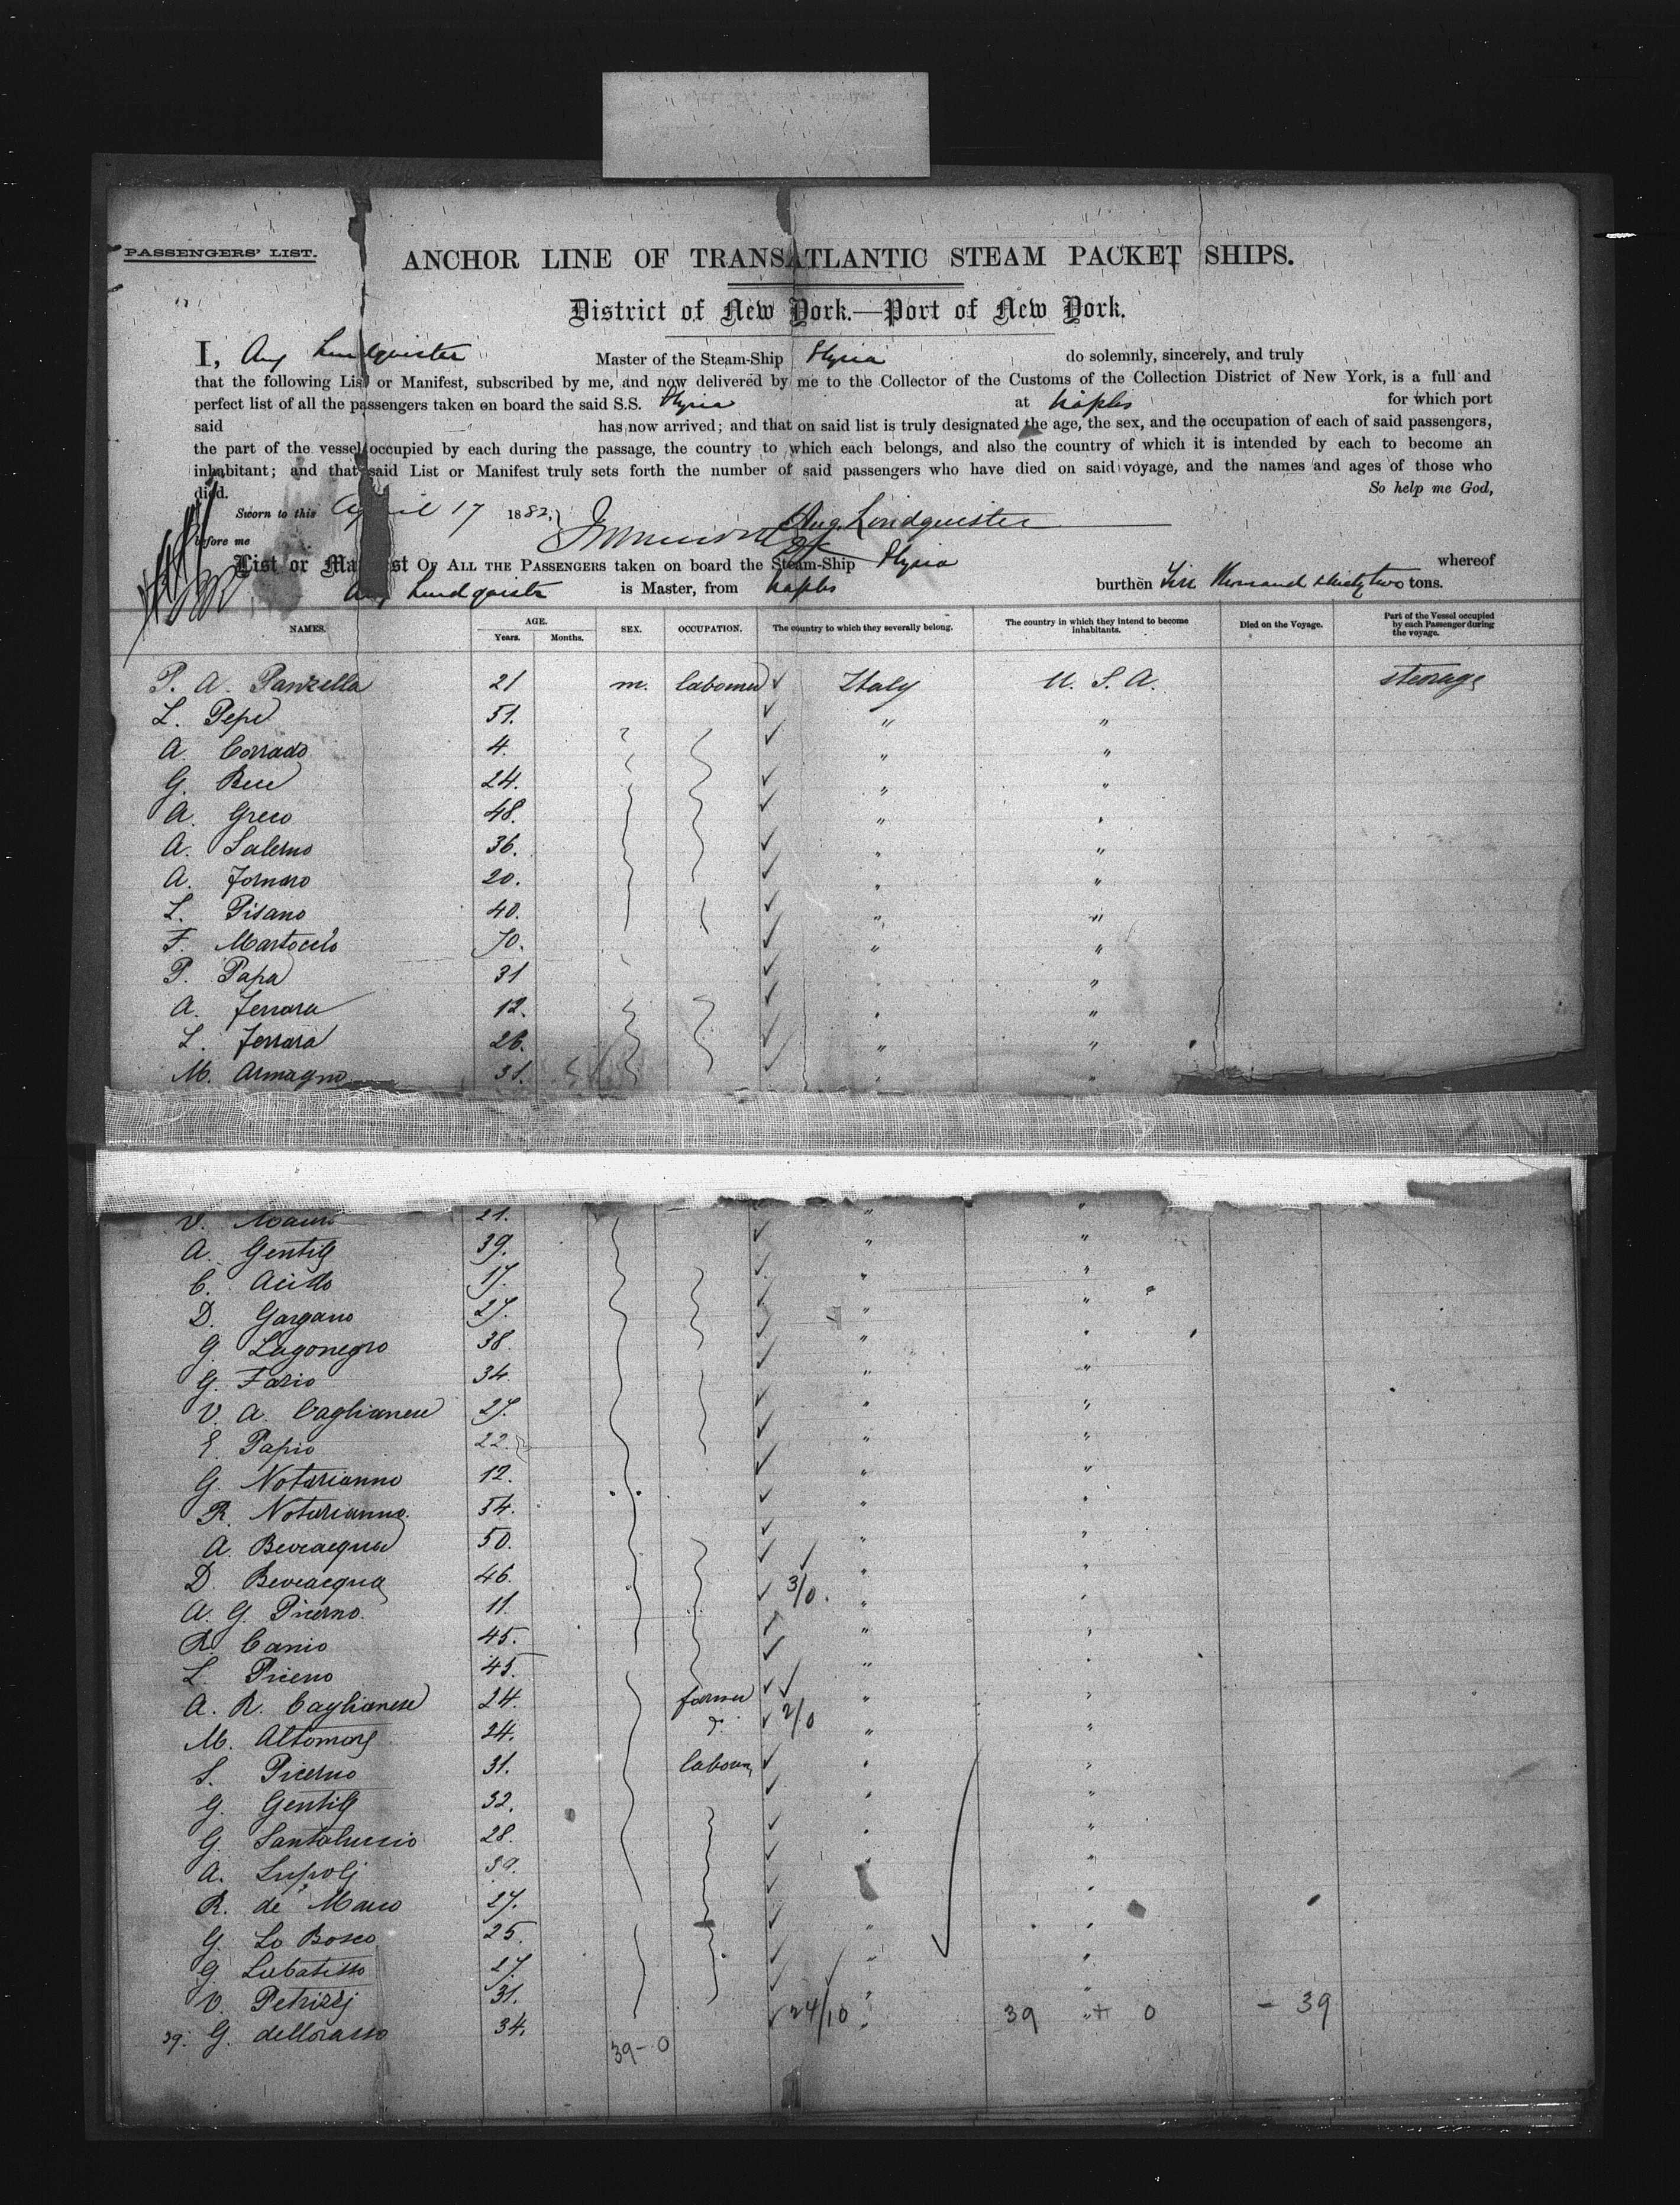 PASSENGERS' LIST.
ANCHOR LINE OF TRANSATLANTIC STEAM PACKET SHIPS.
District of New York.—Port of New York.
I, Aug Lundquister Master of the Steam-Ship do solemnly, sincerely, and truly
that the following List or Manifest, subscribed by me, and now delivered by me to the Collector of the Customs of the Collection District of New York, is a full and
perfect list of all the passengers taken on board the said S.S. at Naples for which port
said has now arrived; and that on said list is truly designated the age, the sex, and the occupation of each of said passengers,
the part of the vessel occupied by each during the passage, the country to which each belongs, and also the country of which it is intended by each to become an
inhabitant; and that said List or Manifest truly sets forth the number of said passengers who have died on said voyage, and the names and ages of those who
died. So help me God,
Sworn to this April 17 1882, Aug. Lindquister
before me
List or Manifest OF ALL THE PASSENGERS taken on board the Steam-Ship whereof
Aug Lundquister is Master, from Naples burthen thousand thirty two tons.
NAMES. AGE. Years. Months. SEX. OCCUPATION. The country to which they severally belong. The country in which they intend to become inhabitants. Died on the Voyage. Part of the Vessel occupied by each Passenger during the voyage.
P. A. Panzella 21 m. labourer Italy U. S. A. steerage
L. Pepe 51. " "
A. Corrado 4. " "
G. 24. " "
A. Greco 48. " "
A. Salerno 36. " "
A. Fornaro 20. " "
L. Pisano 40. " "
F. Martocelo 70. " "
P. Papa 31 " "
A. Ferrara 12. " "
L. Ferrara 26. " "
M. Armagno 31. " "
V. Mauro 21. " "
A. Gentile 39. " "
C. 17. " "
D. Gargano 27. " "
G. Lagonegro 38. " "
G. Fario 34. " "
V. A. Caglianese 27. " "
E. Papio 22. " "
G. Notarianno 12. " "
R. Notarianno. 54. " "
A. Bevacqua 50. " "
D. Bevacqua 46. " "
A. G. Picerno. 11. 3/0. " "
R. Canio 45. " "
L. Piceno 45. " "
A. R. Caglianese 24. farmer " "
M. Altomare 24. 2/0 " "
S. Picerno 31. labourer " "
G. Gentile 32. " "
G. Santoluccio 28. " "
A. Lupoli 39. " "
R. de Marco 27. " "
G. Lo Bosco 25. " "
G. Lubatisso 27. " "
V. Petrizzi 31. " "
39. G. 34. 24/10 " 39 + 0 - 39
39-0